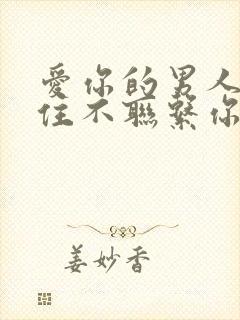 愛你的男人
住不聯繫你
姜妙香